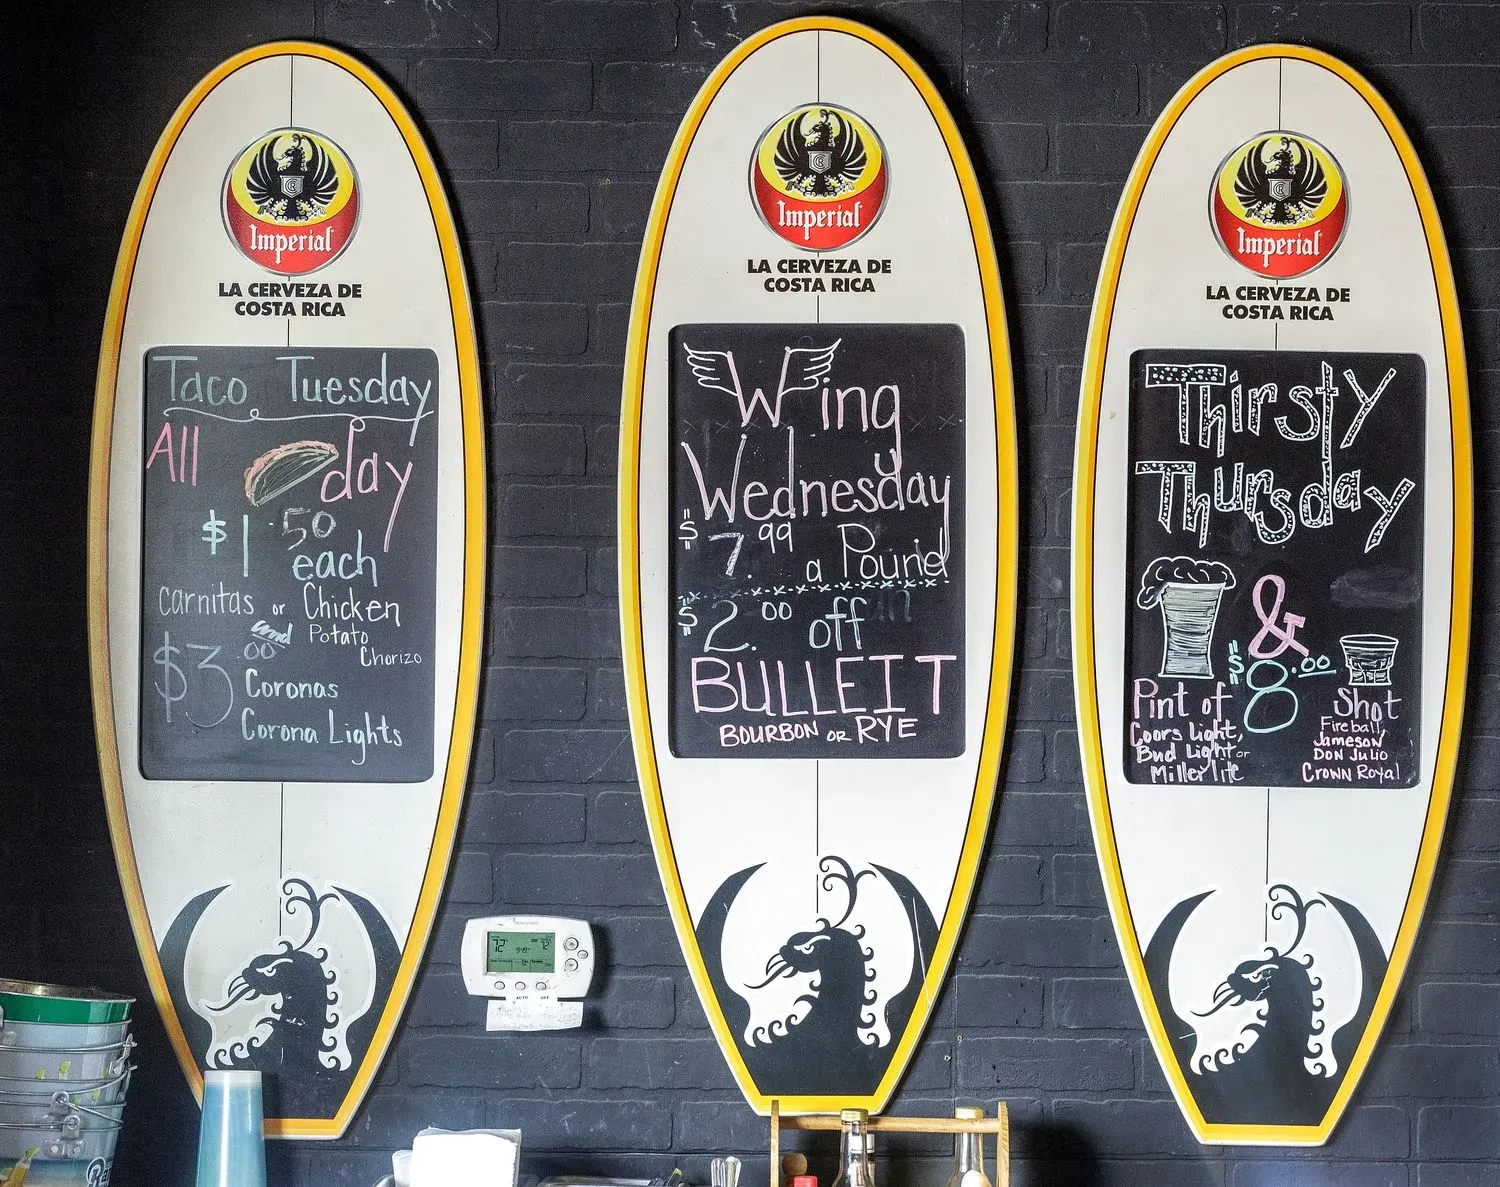 Imperial
LA CERVEZA DE
COSTA RICA
Taco Tuesday
All day
$1.50
each
carnitas or Chicken
and Potato
Chorizo
$3.00 Coronas
Corona Lights
Imperial
LA CERVEZA DE
COSTA RICA
Wing
Wednesday
$7.99 a Pound
$2.00 off
BULLEIT
BOURBON OR RYE
Imperial
LA CERVEZA DE
COSTA RICA
Thirsty
Thursday
&
$8.00
Pint of
Coors Light,
Bud Light or
Miller lite
Shot
Fireball,
Jameson
DON JULIO
CROWN ROYAL
Honeywell
72
72
AUTO OFF